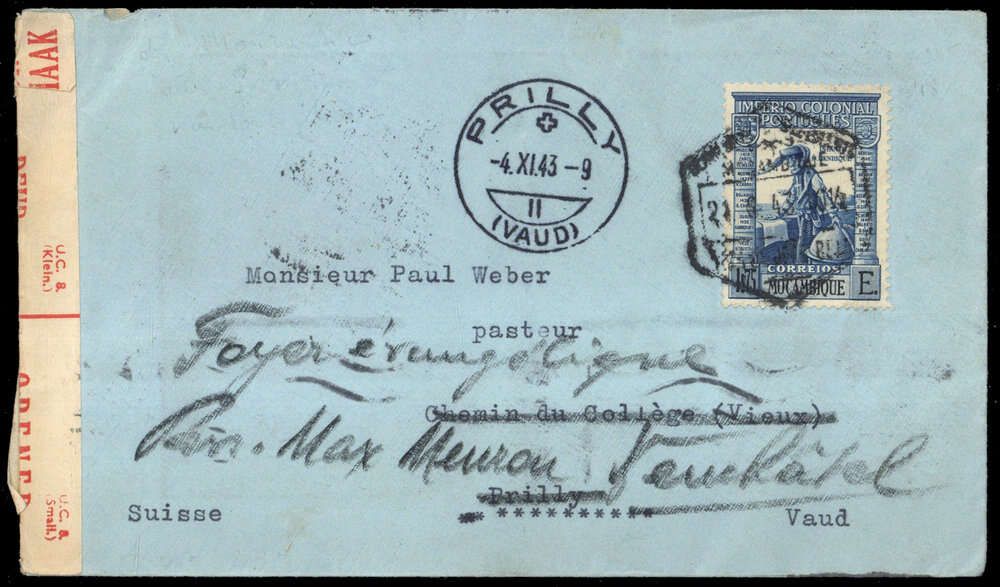 MAAK
U.C. 8.
(Klein.)
OPENED
U.C. 8.
Small.)
PRILLY
-4.XI.43-9
II
(VAUD)
IMPÉRIO COLONIAL
PORTUGUÊS
CORREIOS
1$75 MOÇAMBIQUE E.
Monsieur Paul Weber
pasteur
Foyer évangélique
Chemin du Collège (Vieux)
Max Meuron Neuchâtel
Prilly
** **********
Suisse Vaud